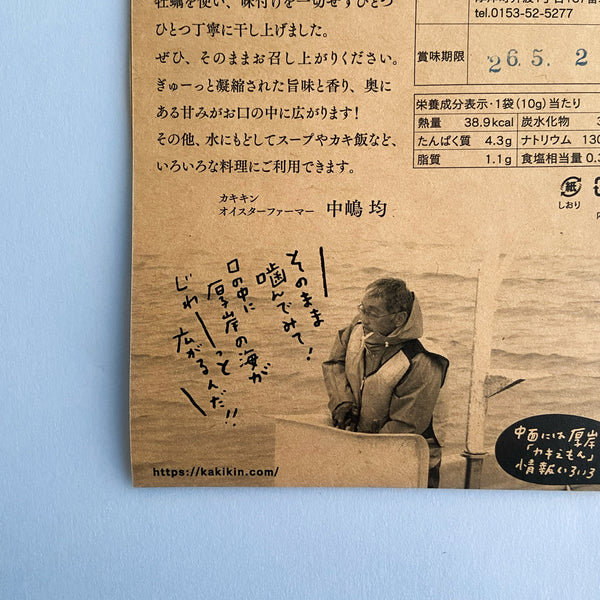 牡蠣を使い、味付けを一切せずひとつ
ひとつ丁寧に干し上げました。
ぜひ、そのままお召し上がりください。
ぎゅーっと凝縮された旨味と香り、奥に
ある甘みがお口の中に広がります!
その他、水にもどしてスープやカキ飯など、
いろいろな料理にご利用できます。
カキキン
オイスターファーマー 中嶋 均
tel.0153-52-5277
賞味期限
26.5.2
栄養成分表示・1袋(10g)当たり
熱量 38.9kcal 炭水化物
たんぱく質 4.3g ナトリウム 130
脂質 1.1g 食塩相当量 0.3
紙
しおり
そのまま
噛んでみて!
口の中に
厚岸の海が
じわーっと
広がるんだ!!
https://kakikin.com/
中面には厚岸
「カキえもん」
情報いろいろ